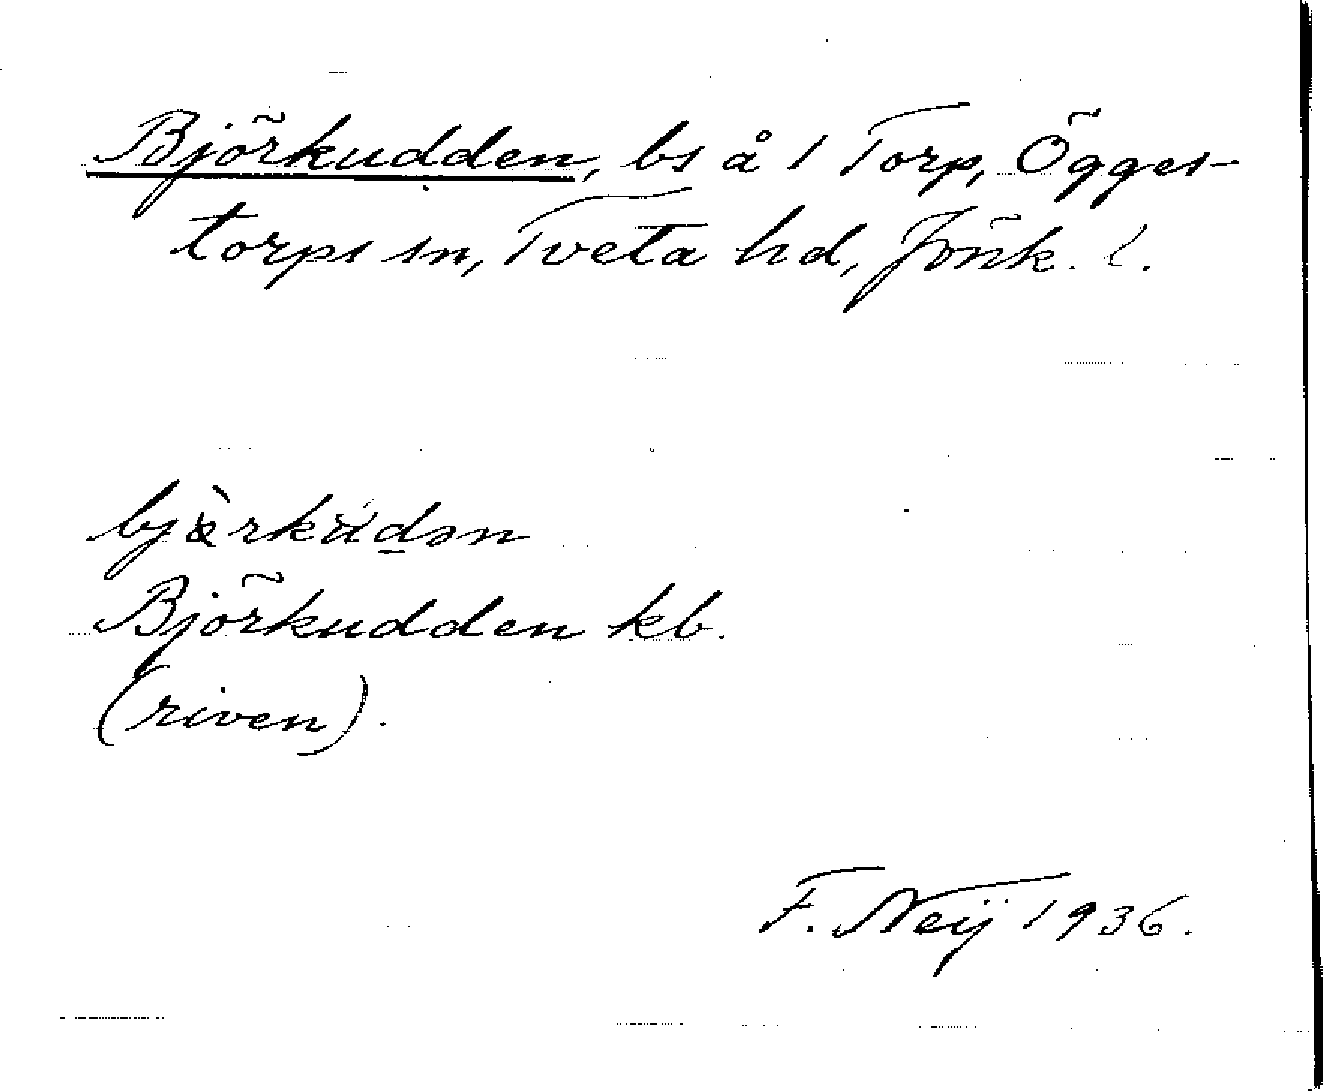 Björkudden, bs å 1 Torp, Ögges-
torps sn, Tveta hd, Jönk. l.
Björkudden kb.
(riven).
F. Neij 1936.